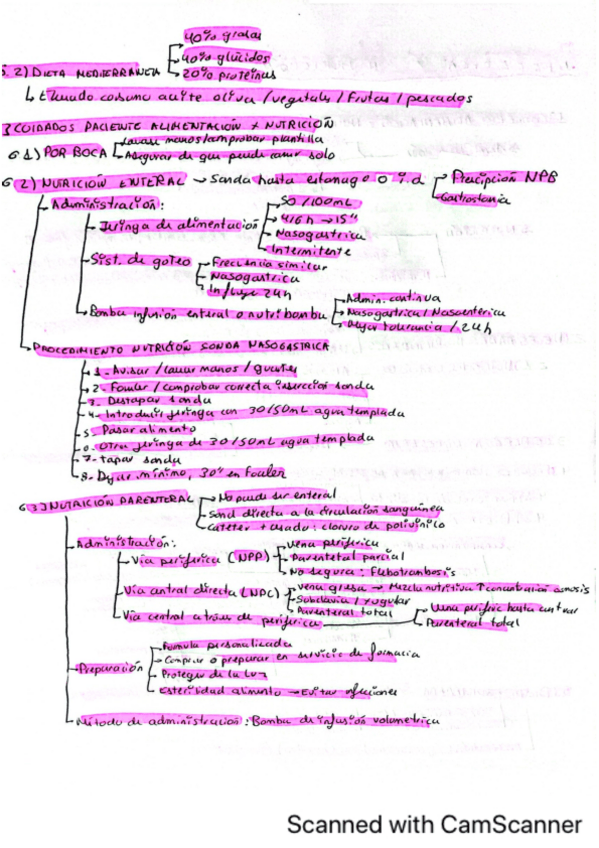 40% grasas
40% glúcidos
5.2) DIETA MEDITERRANEA 20% proteinas
↳ El mundo consumo aceite oliva / vegetales / frutas / pescados
CUIDADOS PACIENTE ALIMENTACIÓN Y NUTRICIÓN
6 1) POR BOCA Lavarse manos/comprobar plantilla
Asegurar de que puede comer solo
6 2) NUTRICIÓN ENTERAL → Sonda hasta estomago o i.d Precipción NPB
Gastrostomia
Administración: 50/100mL
Jeringa de alimentación 4/6h → 15"
Nasogastrica
Intermitente
Sist. de goteo Frecuencia similar
Nasogastrica
24h
Bomba infusión enteral o nutribomba Admin. continua
Nasogastrica / Nasoenterica
Mejor tolerancia / 24h
PROCEDIMIENTO NUTRICIÓN SONDA NASOGASTRICA
1- Avisar / lavar manos / guantes
2- Fowler / comprobar correcta inserccion sonda
3- Destapar sonda
4- Introducir jeringa con 30/50mL agua templada
5- Pasar alimento
6- Otra jeringa de 30/50mL agua templada
7- tapar sonda
8- Dejar mínimo, 30" en Fowler
6 3) NUTRICIÓN PARENTERAL No puede ser enteral
directa a la circulación sanguínea
Catéter + usado: cloruro de polivinilo
Administración: vena periferica
Vía periferica (NPP) Parentetal parcial
No segura: Flebotrombosis
Vía central directa vena gruesa → Mezcla nutritiva ↑ concentración osmosis
Subclavia / yugular
Parenteral total Vena periferic hasta central
Vía central a traves de periferica Parenteral total
Formula personalizada
Comprar o preparar en servicio de farmacia
Preparación Proteger de la luz
Esterilidad alimento → Evitar infecciones
Método de administración: Bomba de infusión volumetrica
Scanned with CamScanner